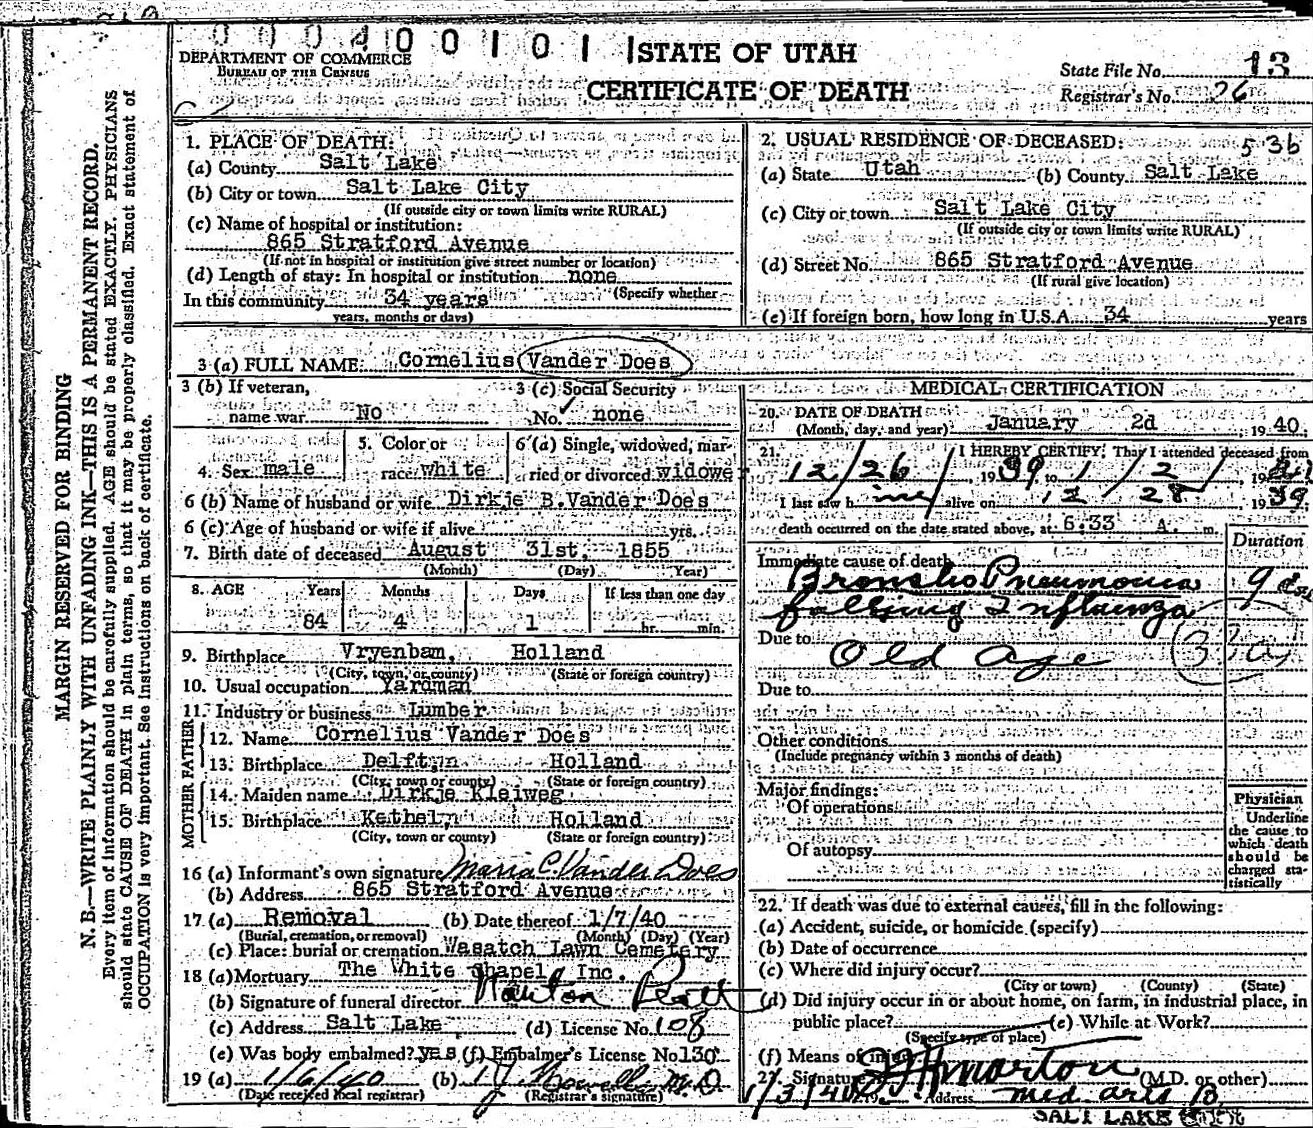 0 0 0 4 0 0 1 0 1 1
DEPARTMENT OF COMMERCE
BUREAU OF THE CENSUS
STATE OF UTAH
CERTIFICATE OF DEATH
State File No. 13
Registrar's No. 26
MARGIN RESERVED FOR BINDING
N. B.—WRITE PLAINLY WITH UNFADING INK—THIS IS A PERMANENT RECORD.
Every item of information should be carefully supplied. AGE should be stated EXACTLY. PHYSICIANS
should state CAUSE OF DEATH in plain terms, so that it may be properly classified. Exact statement of
OCCUPATION is very important. See instructions on back of certificate.
1. PLACE OF DEATH:
(a) County Salt Lake
(b) City or town Salt Lake City
(If outside city or town limits write RURAL)
(c) Name of hospital or institution:
865 Stratford Avenue
(If not in hospital or institution give street number or location)
(d) Length of stay: In hospital or institution none
(Specify whether
In this community 34 years
years, months or days)
2. USUAL RESIDENCE OF DECEASED: 536
(a) State Utah (b) County Salt Lake
(c) City or town Salt Lake City
(If outside city or town limits write RURAL)
(d) Street No. 865 Stratford Avenue
(If rural give location)
(e) If foreign born, how long in U.S.A. 34 years
3 (a) FULL NAME: Cornelius Vander Does
3 (b) If veteran, 3 (c) Social Security
name war No No. none
4. Sex male 5. Color or race white 6 (a) Single, widowed, married or divorced widower
6 (b) Name of husband or wife Dirkje B. Vander Does
6 (c) Age of husband or wife if alive yrs.
7. Birth date of deceased August 31st, 1855
(Month) (Day) Year)
8. AGE Years Months Days If less than one day
84 4 1 hr. min.
9. Birthplace Vryenbam, Holland
(City, town, or county) (State or foreign country)
10. Usual occupation Yardman
11. Industry or business Lumber
FATHER
12. Name Cornelius Vander Does
13. Birthplace Delft, Holland
(City, town or county) (State or foreign country)
MOTHER
14. Maiden name Dirkje Kleiweg
15. Birthplace Kethel, Holland
(City, town or county) (State or foreign country)
16 (a) Informant's own signature Maria C. Vander Does
(b) Address 865 Stratford Avenue
17 (a) Removal (b) Date thereof 1/7/40
(Burial, cremation, or removal) (Month) (Day) (Year)
(c) Place: burial or cremation Wasatch Lawn Cemetery
18 (a) Mortuary The White Chapel, Inc.
(b) Signature of funeral director
(c) Address Salt Lake (d) License No. 108
(e) Was body embalmed? yes (f) Embalmer's License No 130
19 (a) 1/6/40 (b) M.D.
(Date received local registrar) (Registrar's signature)
MEDICAL CERTIFICATION
20. DATE OF DEATH
(Month, day, and year) January 2d 19 40
21. I HEREBY CERTIFY: That I attended deceased from
12/26, 19 39 to 1/2, 19
I last saw h im alive on 12 28, 19 39
death occurred on the date stated above, at 6:33 A. m.
Duration
Immediate cause of death
Broncho Pneumonia 9 da
following Influenza
Due to Old age
Due to
Other conditions
(Include pregnancy within 3 months of death)
Major findings:
Of operations
Of autopsy
Physician
Underline
the cause to
which death
should be
charged sta-
tistically
22. If death was due to external causes, fill in the following:
(a) Accident, suicide, or homicide (specify)
(b) Date of occurrence
(c) Where did injury occur?
(City or town) (County) (State)
(d) Did injury occur in or about home, on farm, in industrial place, in
public place? (e) While at Work?
(Specify type of place)
(f) Means of injury
Signature (M.D. or other)
1/3/40 Address Med arts B
SALT LAKE CITY